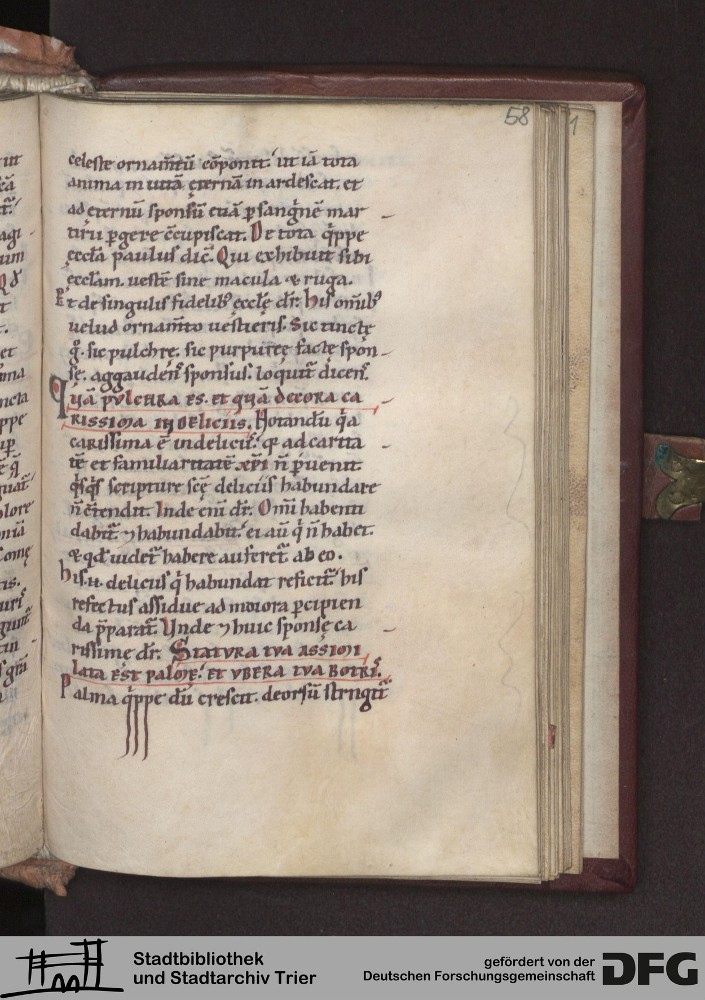 58
1
celeste ornam̄tū cōponit. ut iā tota
anima in uitā ęternā inardescat. et
ad eternū sponsū etiā ꝑ sangīnē mar
tirii ꝑgere c̄cupiscat. De tota q̄ppe
ęccl̄a paulus dic̄. Qui exhibuit sibi
ęccl̄am. uestē sine macula & ruga.
Et de singulis fidelibꝰ eccl̄ę dr̄. his om̄ibꝰ
uelud ornam̄to uestieris. Sic tinctę
g̊. sic pulchrę. sic purpureę factę spon
sę. aggaudens sponsus. loquit̄ dicens.
Quā pulchra es. et quā decora ca
rissima in deliciis. Notandū q̄a
carissima ē in deliciis. q̄ ad carita
tē et familiaritatē xp̄i n̄ ꝑuenit
q̄sq̄s scripturę scę̄ deliciis habundare
n̄ c̄tendit. Inde eni̅ dr̄. Omī habenti
dabit̄ ⁊ habundabit. ei aū q̄ n̄ habet.
& qd̄ uidet̄ habere auferet̄ ab eo.
his .n. deliciis q̄ habundat reficit̄. his
refectus assidue ad maiora ꝑcipien
da p̄parat̄. Unde ⁊ huic sponsę ca
rissimę dr̄. Statura tua assimi
lata est palmę. et ubera tua botris.
Palma q̄ppe dū crescit. deorsū stringit̄
Stadtbibliothek
und Stadtarchiv Trier
gefördert von der
Deutschen Forschungsgemeinschaft
DFG